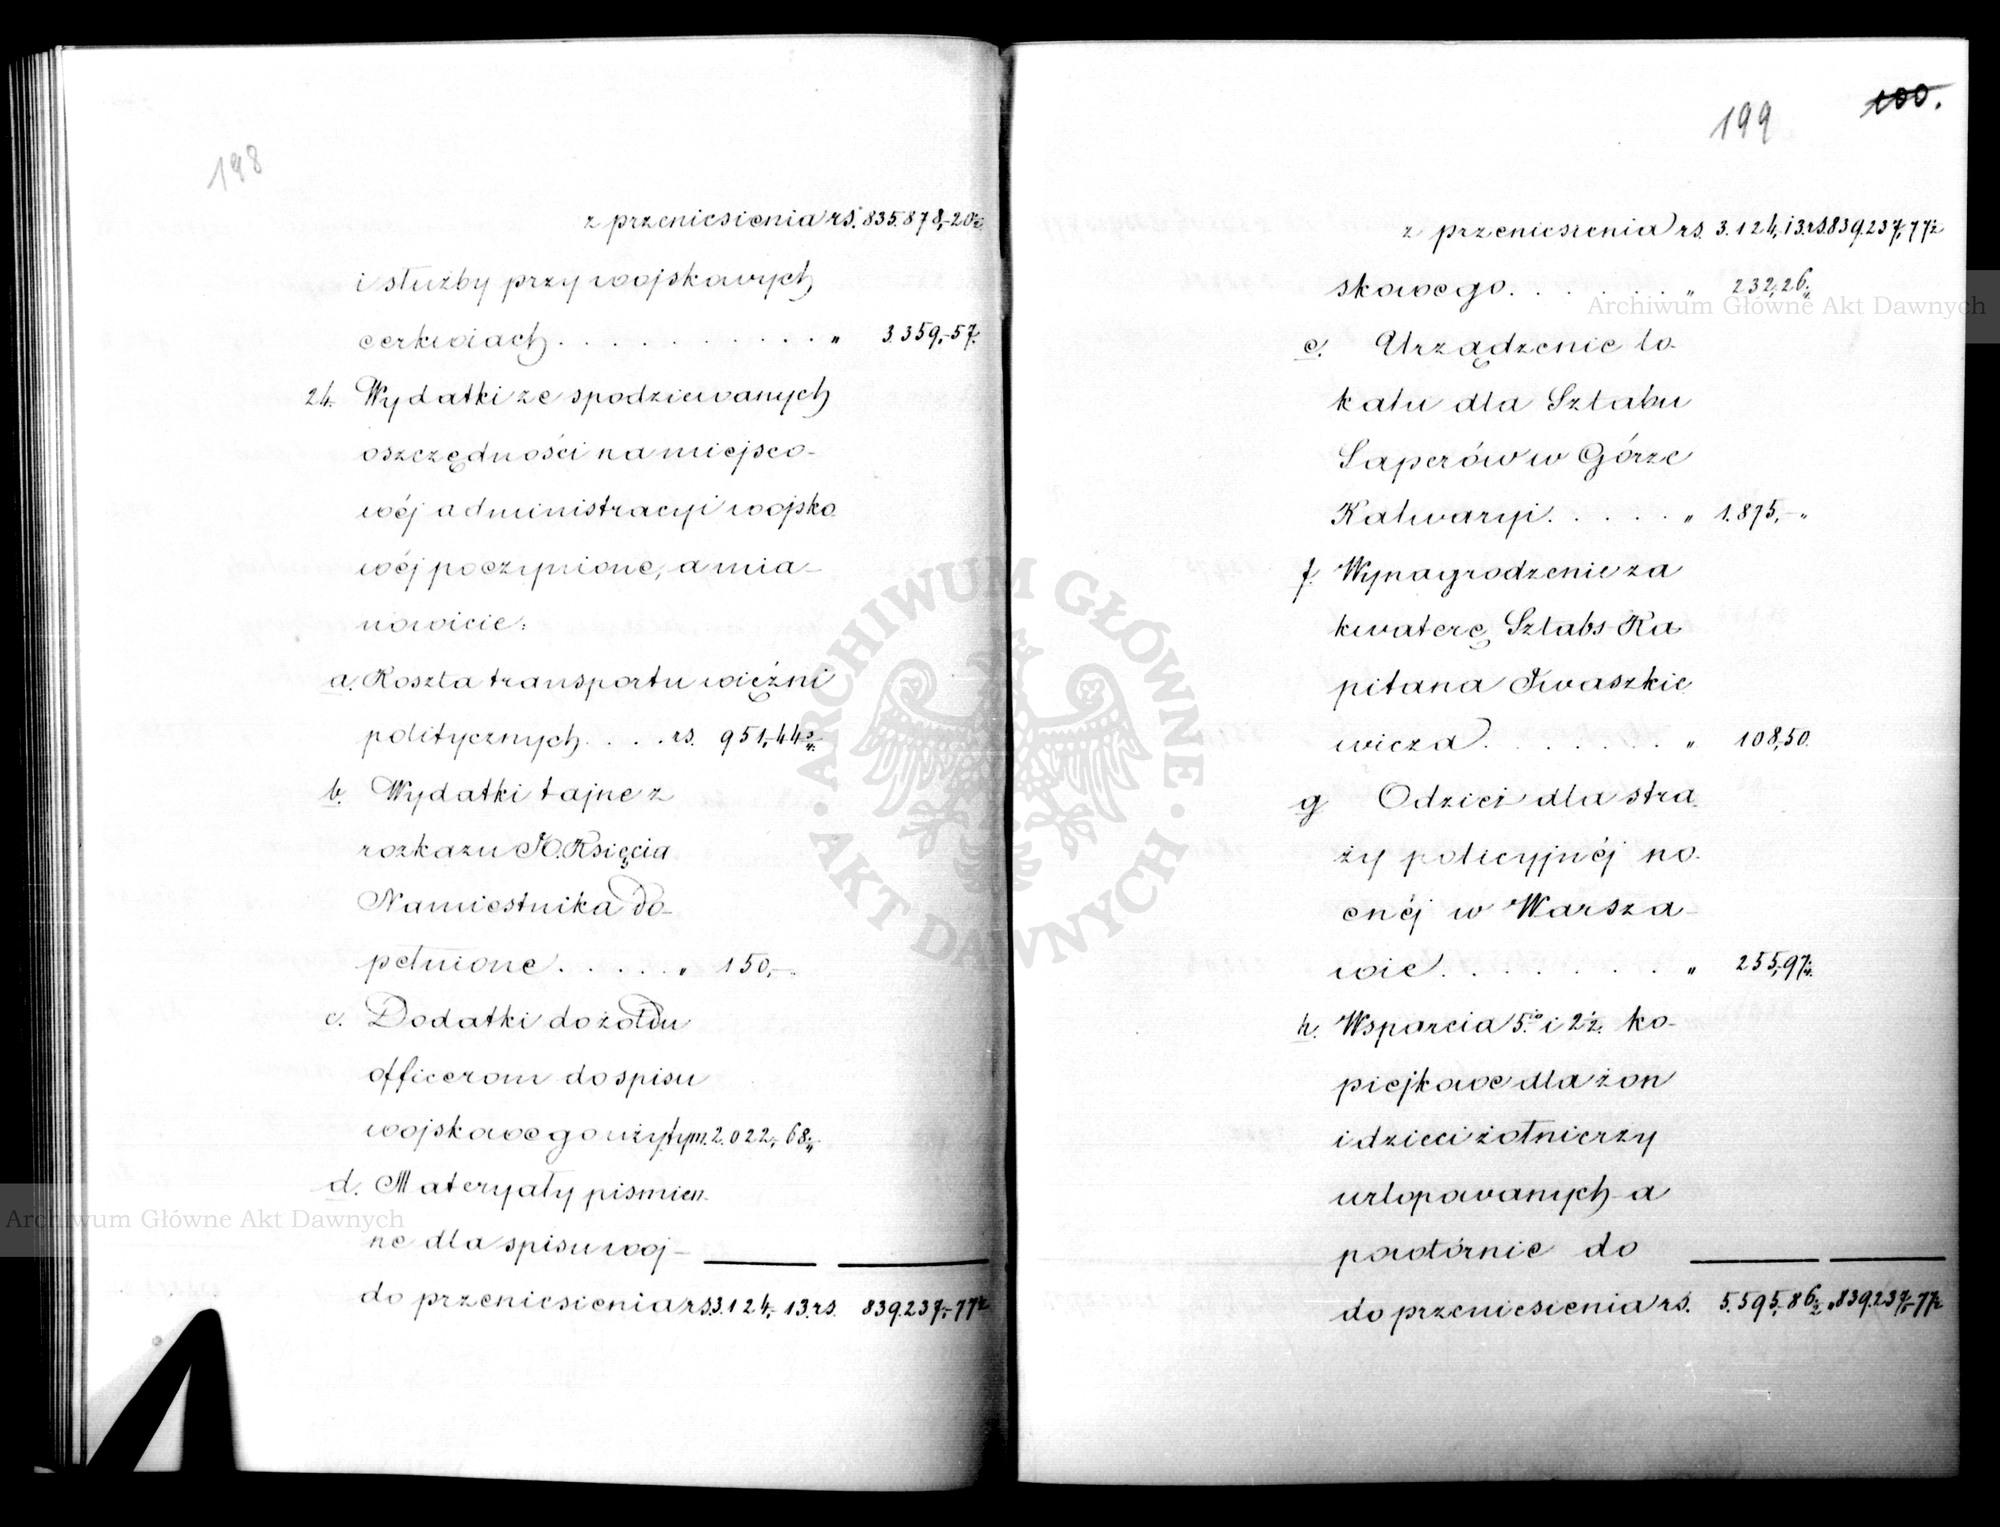 198
z przeniesienia rs. 835.878,-20½
i służby przy wojskowych
cerkwiach . . . . . . . . . . . " 3.359,-57.
24. Wydatki ze spodziewanych
oszczędności na miejsco-
wéj administracyi wojsko
wéj poczynione, a mia-
nowicie:
a. Koszta transportu więźni
politycznych . . . . rs. 951,-44¾
b. Wydatki tajne z
rozkazu JO. Księcia
Namiestnika do-
pełnione . . . . . " 150,-
c. Dodatki do żołdu
officerom do spisu
wojskowego użytym. 2.022,-68¼
d. Materyały pismien-
ne dla spisu woj-
do przeniesienia rs. 3.124,-13. rs. 839.237,-77½
100.
199
z przeniesienia rs. 3.124,13. rs. 839.237,77½
skowego . . . . . . . " 232,26
e. Urządzenie lo-
kalu dla Sztabu
Saperów w Górze
Kalwaryi . . . . . " 1.875,-"
f. Wynagrodzenie za
kwaterę Sztabs-Ka-
pitana Iwaszkie
wicza . . . . . . . " 108,50.
g Odzież dla stra-
ży policyjnéj no-
cnéj w Warsza-
wie . . . . . . . . " 255,97
h. Wsparcia 5.io i 2½. ko-
piejkowe dla żon
i dzieci żołnierzy
urlopowanych a
powtórnie do
do przeniesienia rs. 5.595,-86½ " 839.237,-77½
Archiwum Główne Akt Dawnych
Archiwum Główne Akt Dawnych
ARCHIWUM GŁÓWNE · AKT DAWNYCH ·